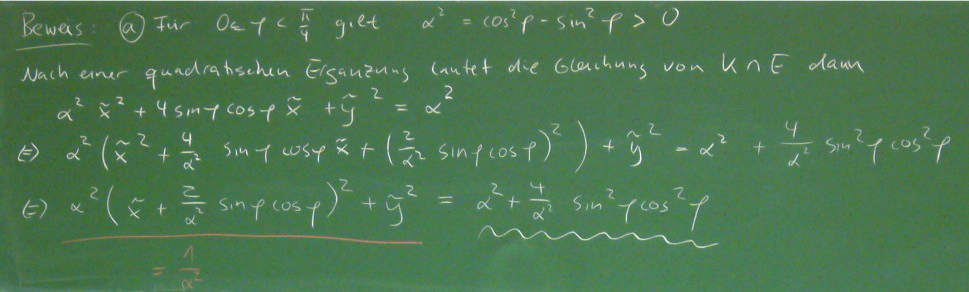 Beweis: (a) Für 0 ≤ φ < π/4 gilt α² = cos²φ - sin²φ > 0
Nach einer quadratischen Ergänzung lautet die Gleichung von K ∩ E dann
α² x̃² + 4 sin φ cos φ x̃ + ỹ² = α²
⇔ α² ( x̃² + 4/α² sin φ cos φ x̃ + ( 2/α² sin φ cos φ )² ) + ỹ² = α² + 4/α² sin²φ cos²φ
⇔ α² ( x̃ + 2/α² sin φ cos φ )² + ỹ² = α² + 4/α² sin²φ cos²φ
= 1/α²